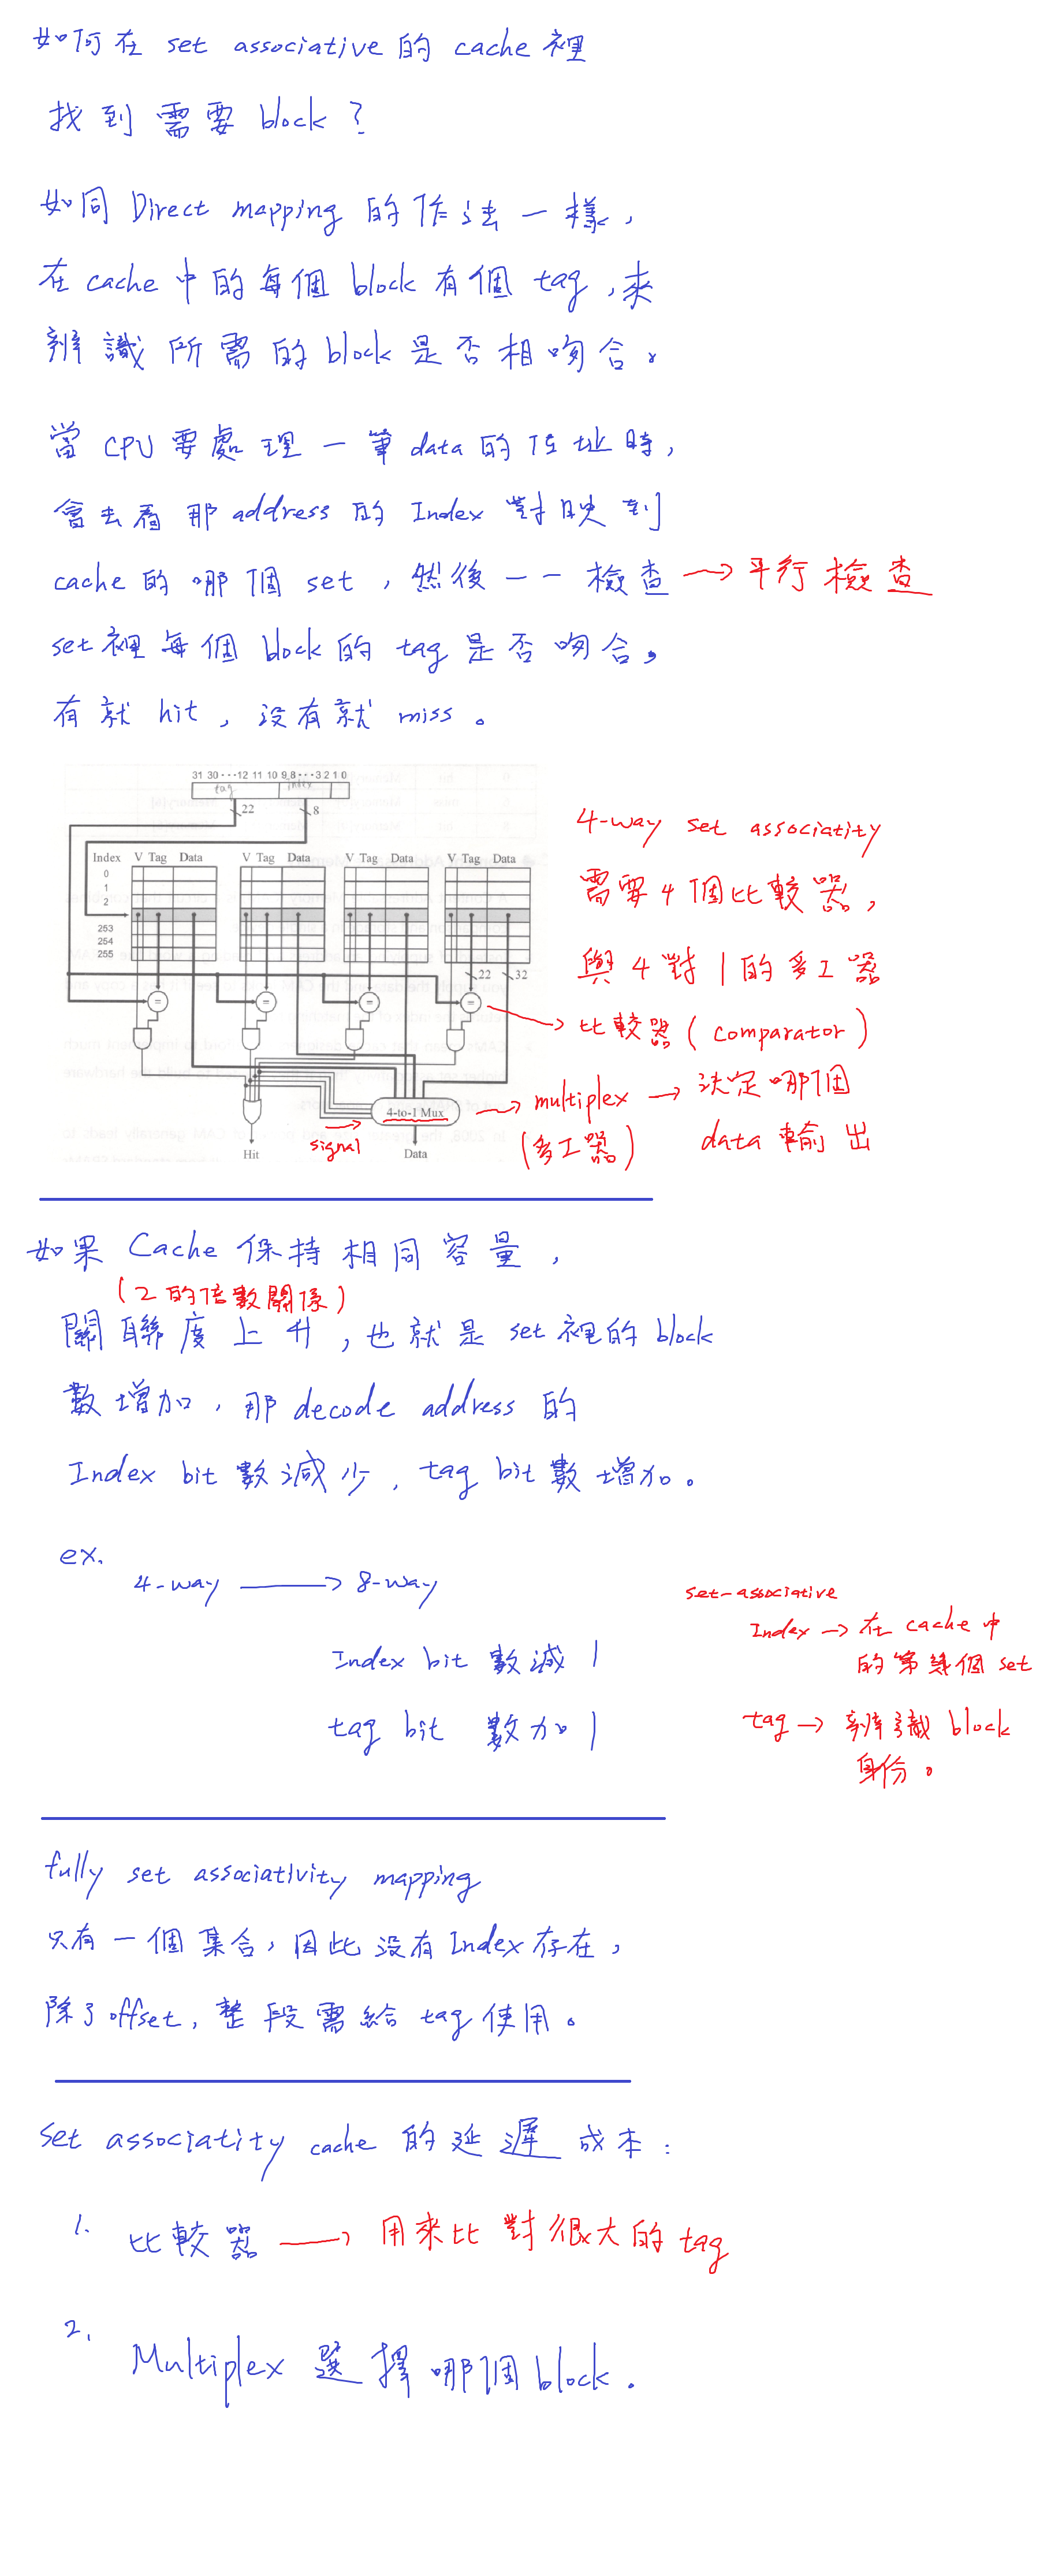 如何在 set associative 的 cache 裡
找到需要 block?
如同 Direct mapping 的作法一樣,
在 cache 中的每個 block 有個 tag,來
辨識所需的 block 是否相吻合。
當 CPU 要處理一筆 data 的位址時,
會去看那 address 的 Index 對映到
cache 的哪個 set,然後一一檢查 → 平行檢查
set 裡每個 block 的 tag 是否吻合。
有就 hit,沒有就 miss。
31 30 ··· 12 11 10 9 8 ··· 3 2 1 0
tag index
22 8
Index V Tag Data V Tag Data V Tag Data V Tag Data
0
1
2
253
254
255
22 32
= = = =
4-to-1 Mux
signal
Hit
Data
4-way set associatity
需要4個比較器,
與4對1的多工器
→ 比較器 (comparator)
→ multiplex → 決定哪個
(多工器) data 輸出
如果 Cache 保持相同容量,
(2的倍數關係)
關聯度上升,也就是 set 裡的 block
數增加,那 decode address 的
Index bit 數減少,tag bit 數增加。
ex.
4-way → 8-way
Index bit 數減 1
tag bit 數加 1
set-associative
Index → 在 cache 中
的第幾個 set
tag → 辨識 block
身份。
fully set associativity mapping
只有一個集合,因此沒有 Index 存在,
除了 offset,整段需給 tag 使用。
set associatity cache 的延遲成本:
1. 比較器 → 用來比對很大的 tag
2. Multiplex 選擇哪個 block.